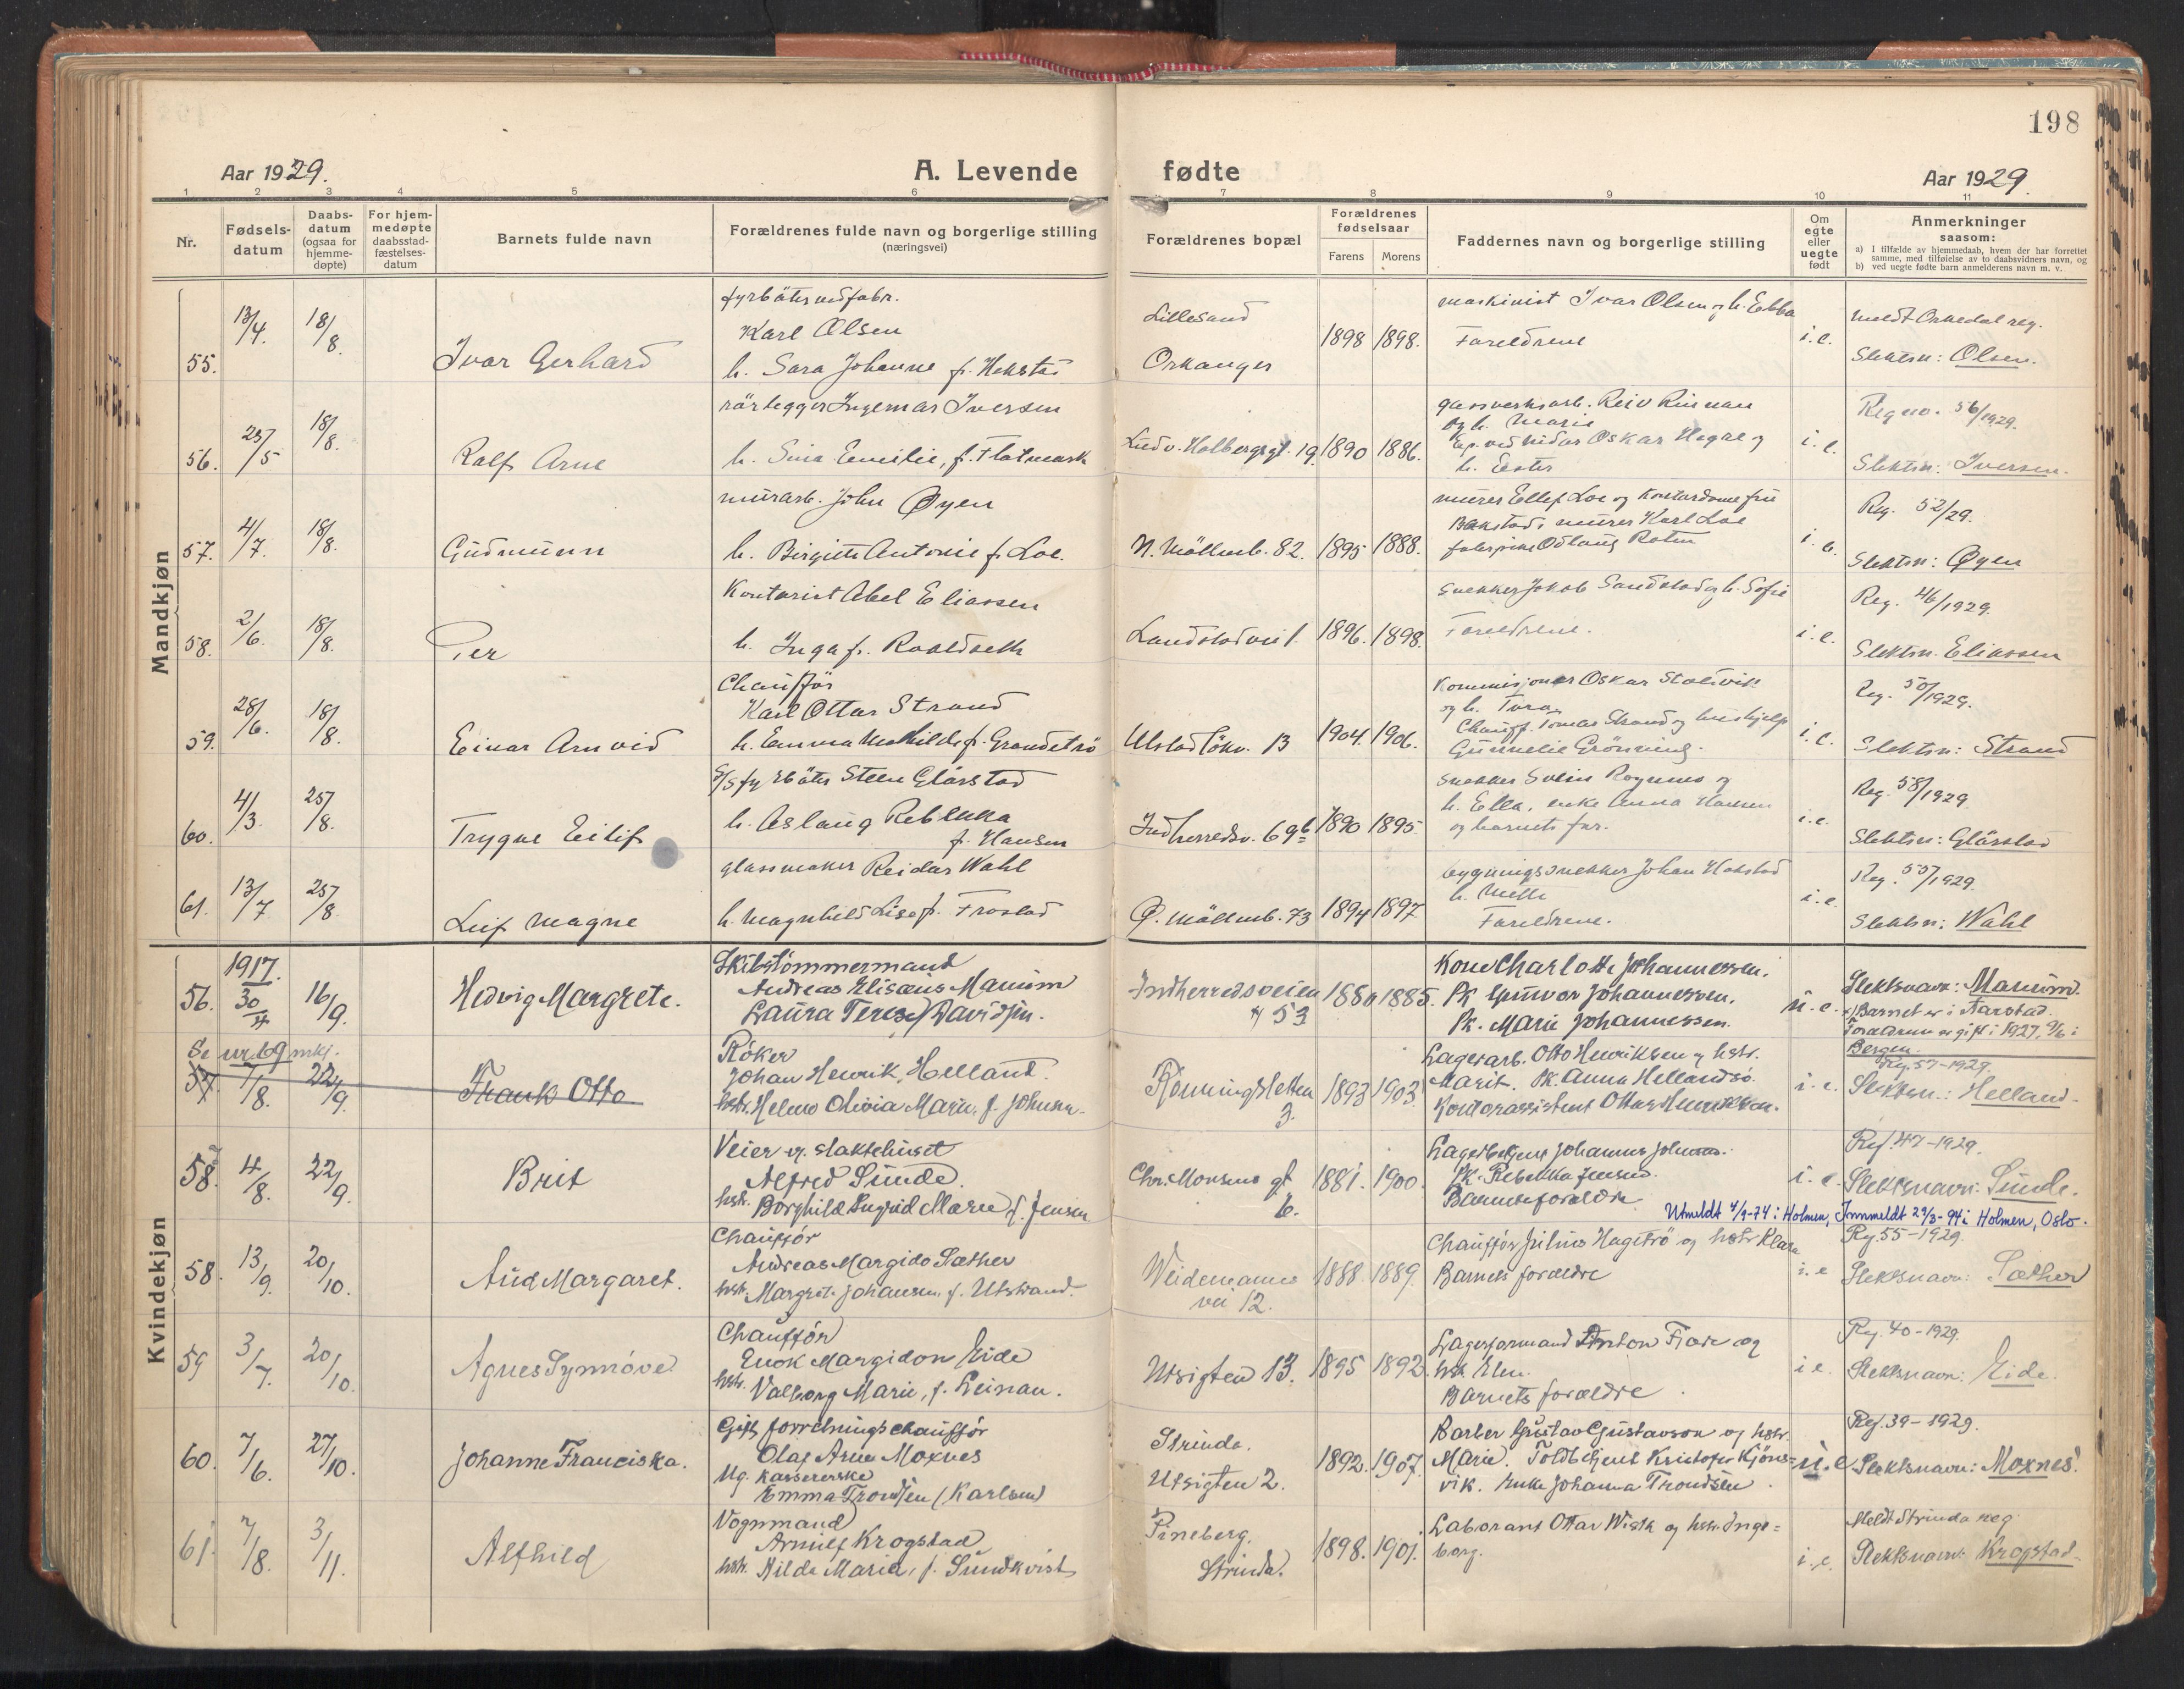 198
Aar 1929.
A. Levende fødte
Aar 1929
1 2 3 4 5 6 7 8 9 10 11
Nr.
Fødsels-
datum
Daabs-
datum
(ogsaa for
hjemme-
døpte)
For hjem-
medøpte
daabsstad-
fæstelses-
datum
Barnets fulde navn
Forældrenes fulde navn og borgerlige stilling
(næringsvei)
Forældrenes bopæl
Forældrenes
fødselsaar
Farens
Morens
Faddernes navn og borgerlige stilling
Om
egte
eller
uegte
født
Anmerkninger
saasom:
a) I tilfælde av hjemmedaab, hvem der har forrettet
samme, med tilføielse av to daabsvidners navn, og
b) ved uegte fødte barn anmelderens navn m. v.
Mandkjøn
55. 13/4. 18/8. Ivar Gerhard
fyrböter ved fabr.
Karl Olsen
h. Sara Johanne f. Hekstad
Lillesand
Orkanger
1898 1898.
maskinist Ivar Olsen og h. Ebba
Foreldrene
i.e.
meldt Orkedal reg.
Slektsn: Olsen.
56. 25/5 18/8. Ralf Arne
rörlegger Ingemar Iversen
h. Sina Emilie, f. Flatmark
Ludv. Holbergsgt. 19. 1890 1886.
gassverksarb. Reiv Rinnan
og h. Marie
Oskar Hegre og
h. Ester
i.e.
Reg no. 56/1929.
Slektsn: Iversen.
57. 4/7. 18/8. Gudmunn
murarb. John Øyen
h. Birgitte Antonie f. Loe.
N. Möllenb. 82. 1895 1888.
murer Ellef Loe og kontordame frk
Bakstad, murer Karl Loe
i.e.
Reg. 52/29.
Slektsn: Øyen
58. 2/6. 18/8. Per
Kontorist Abel Eliassen
h. Inga f. Roaldseth
Landstadvei 1. 1896. 1898.
Snekker Jakob Sandstad og h. Sofie
Foreldrene.
i.e.
Reg. 46/1929.
Slektsn. Eliassen
59. 28/6. 18/8. Einar Arnvid
Chauffør
Karl Ottar Strand
h. Emma Mathilde f. Grandetrö
Ulstadlökv. 13 1904. 1906.
Kommisjonær Oskar Stolsvik
og h. Tora,
Chauff. Tomas Strand og hushjelp
Gunnelie Grönning.
i.e.
Reg. 50/1929.
Slektsn: Strand
60. 4/3. 25/8. Trygve Eilif
S/S fyrböter Steen Glörstad
h. Aslaug Rebekka
f. Hansen
Indherredsv. 69b 1890 1895
snekker Svein Rognmo og
h. Ella, enke Anna Hansen
og barnets far.
i.e.
Reg. 58/1929.
Slektsn: Glörstad
61. 13/7 25/8. Leif Magne
glassmaker Reidar Wahl
h. Magnhild Lise f. Frostad
Ø. Möllenb. 73 1894 1897
bygningssnekker Johan Hokstad
h. Mette
Foreldrene.
i.e.
Reg. 55/1929.
Slektsn: Wahl
Kvindekjøn
56. 1917. 30/4 16/9. Hedvig Margrete.
Skibstömmermand
Andreas Elisæus Manum
Laura Terese Davidsen.
Indherredsveien
53
1880 1885.
Kone Charlotte Johannessen.
Pk. Gunvor Johannessen.
Pk. Marie Johannessen.
u.e.
Slektsnavn: Manum.
x) Barnet er i Aarstad.
Forældrene er gift i 1927, 9/6 i
Bergen.
Se nr. 69 mkj.
57. 7/8. 22/9. Frank Otto
Röker
Johan Henrik Helland.
hstr. Helene Olivia Marie, f. Johnsen.
Rönningsletten
3.
1893 1903.
Lagerarb. Otto Henriksen og hstr.
Marit. Pk. Anna Hellandsö.
Kontorassistent Ottar Henriksen.
i.e.
Reg. 57-1929.
Slektsn.: Helland.
58. 4/8. 22/9. Brit
Veier v. slaktehuset
Alfred Sunde.
hstr. Borghild Ingrid Marie f. Jensen
Chr. Monsens gt
6.
1881. 1900.
Lagerbetjent Johannes Johnsen.
Pk. Rebekka Jensen.
Barnets forældre
i.e.
Reg. 47-1929.
Slektsnavn: Sunde.
Utmeldt 4/9-74 i Holmen, Innmeldt 29/3-94 i Holmen, Oslo.
58. 13/9. 20/10. Aud Margaret.
Chauffør
Andreas Margido Sæther
hstr. Margrete Johansen, f. Utstrand.
Weidemanns
vei 12.
1888. 1889.
Chauffør Julius Hagetrö og hstr Klara
Barnets forældre
i.e
Reg. 55-1929.
Slektsnavn: Sæther
59 3/7. 20/10. Agnes Synnöve.
Chauffør
Enok Margidon Eide
hstr. Valborg Marie, f. Leinan.
Utsigten 13. 1895 1892.
Lagerformand Anton Fjære og
hstr. Elen.
Barnets forældre.
i e.
Reg. 40-1929.
Slektsnavn: Eide.
60. 7/6. 27/10. Johanne Franciska.
Gift forretningschauffør
Olaf Arne Moxnes
Ug. Kassererske
Emma Trondsen (Karlsen)
Strinda.
Utsigten 2.
1892. 1907.
Barber Gustav Gustavson og hstr.
Marie. Toldbetjent Kristofer Kjöns-
vik. Enke Johanna Trondsen.
u.e
Reg. 39-1929.
Slektsnavn: Moxnes.
61. 7/8. 3/11. Alfhild
Vognmand
Arnulf Krogstad
hstr. Hilda Marie, f. Sundkvist
Pineberg,
Strinda.
1898. 1901.
Laborant Ottar Wisth og hstr. Inge=
borg.
i.e.
Meldt Strinda reg.
Slektsnavn: Krogstad.